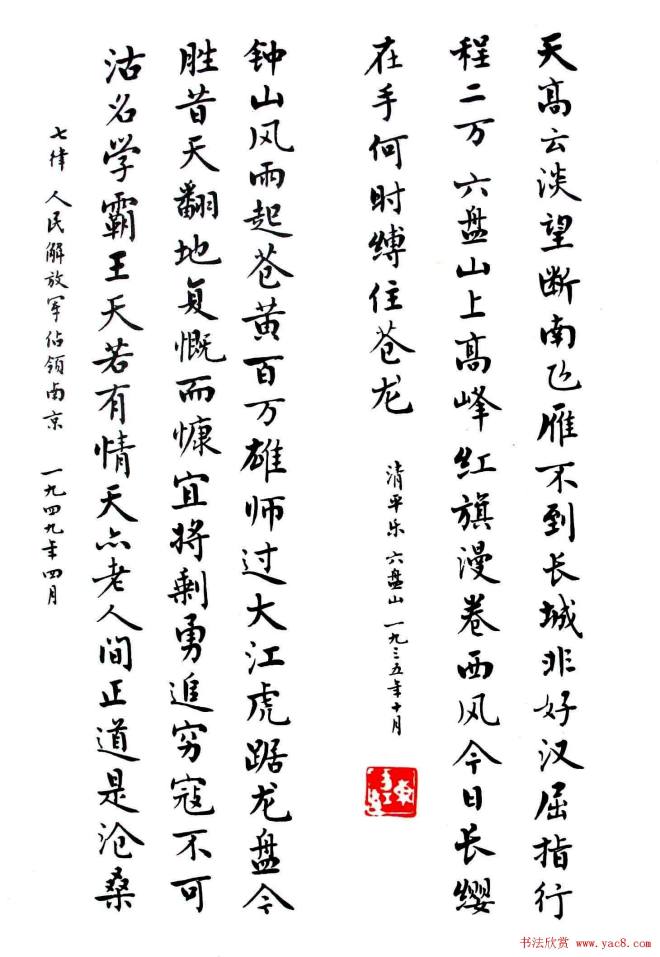 天高云淡望断南飞雁不到长城非好汉屈指行
程二万 六盘山上高峰红旗漫卷西风今日长缨
在手何时缚住苍龙
清平乐 六盘山 一九三五年十月
钟山风雨起苍黄百万雄师过大江虎踞龙盘今
胜昔天翻地复慨而慷宜将剩勇追穷寇不可
沽名学霸王天若有情天亦老人间正道是沧桑
七律 人民解放军佔领南京 一九四九年四月
书法欣赏 www.yac8.com